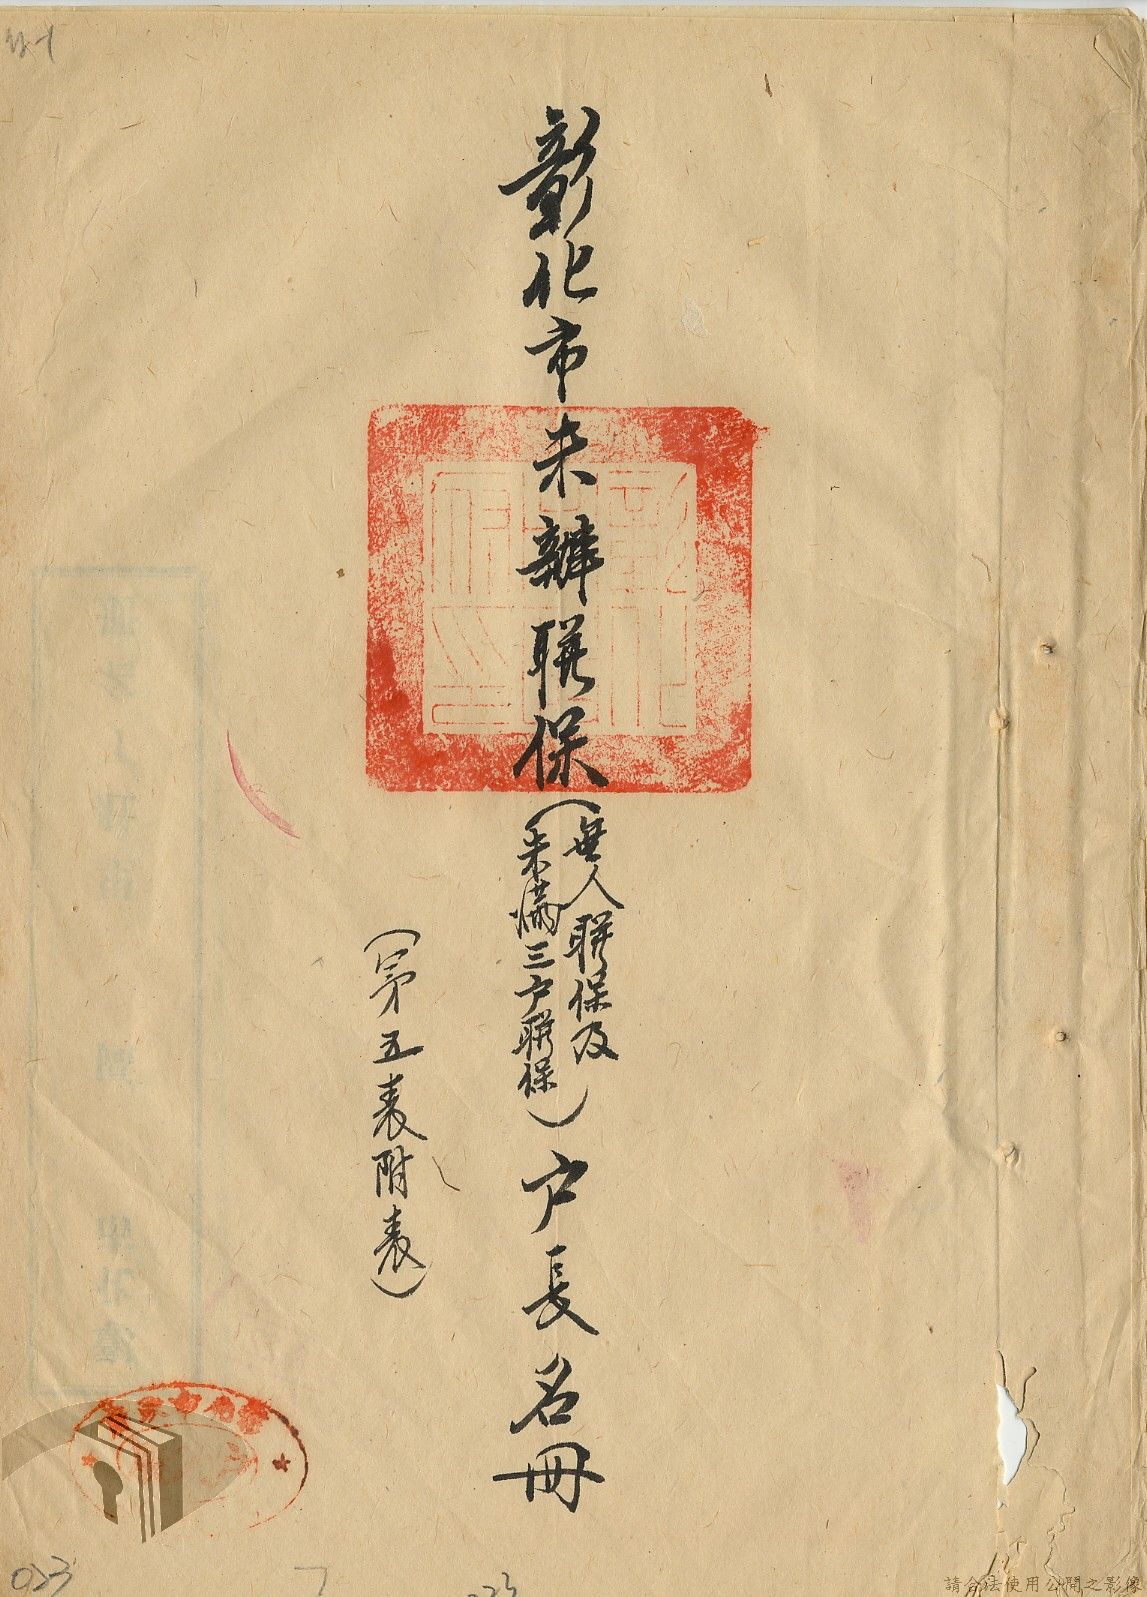 彰化市未辦聯保（無人聯保及未滿三户聯保）户長名冊
（第五表附表）
彰化市政府印
023
請合法使用公開之影像